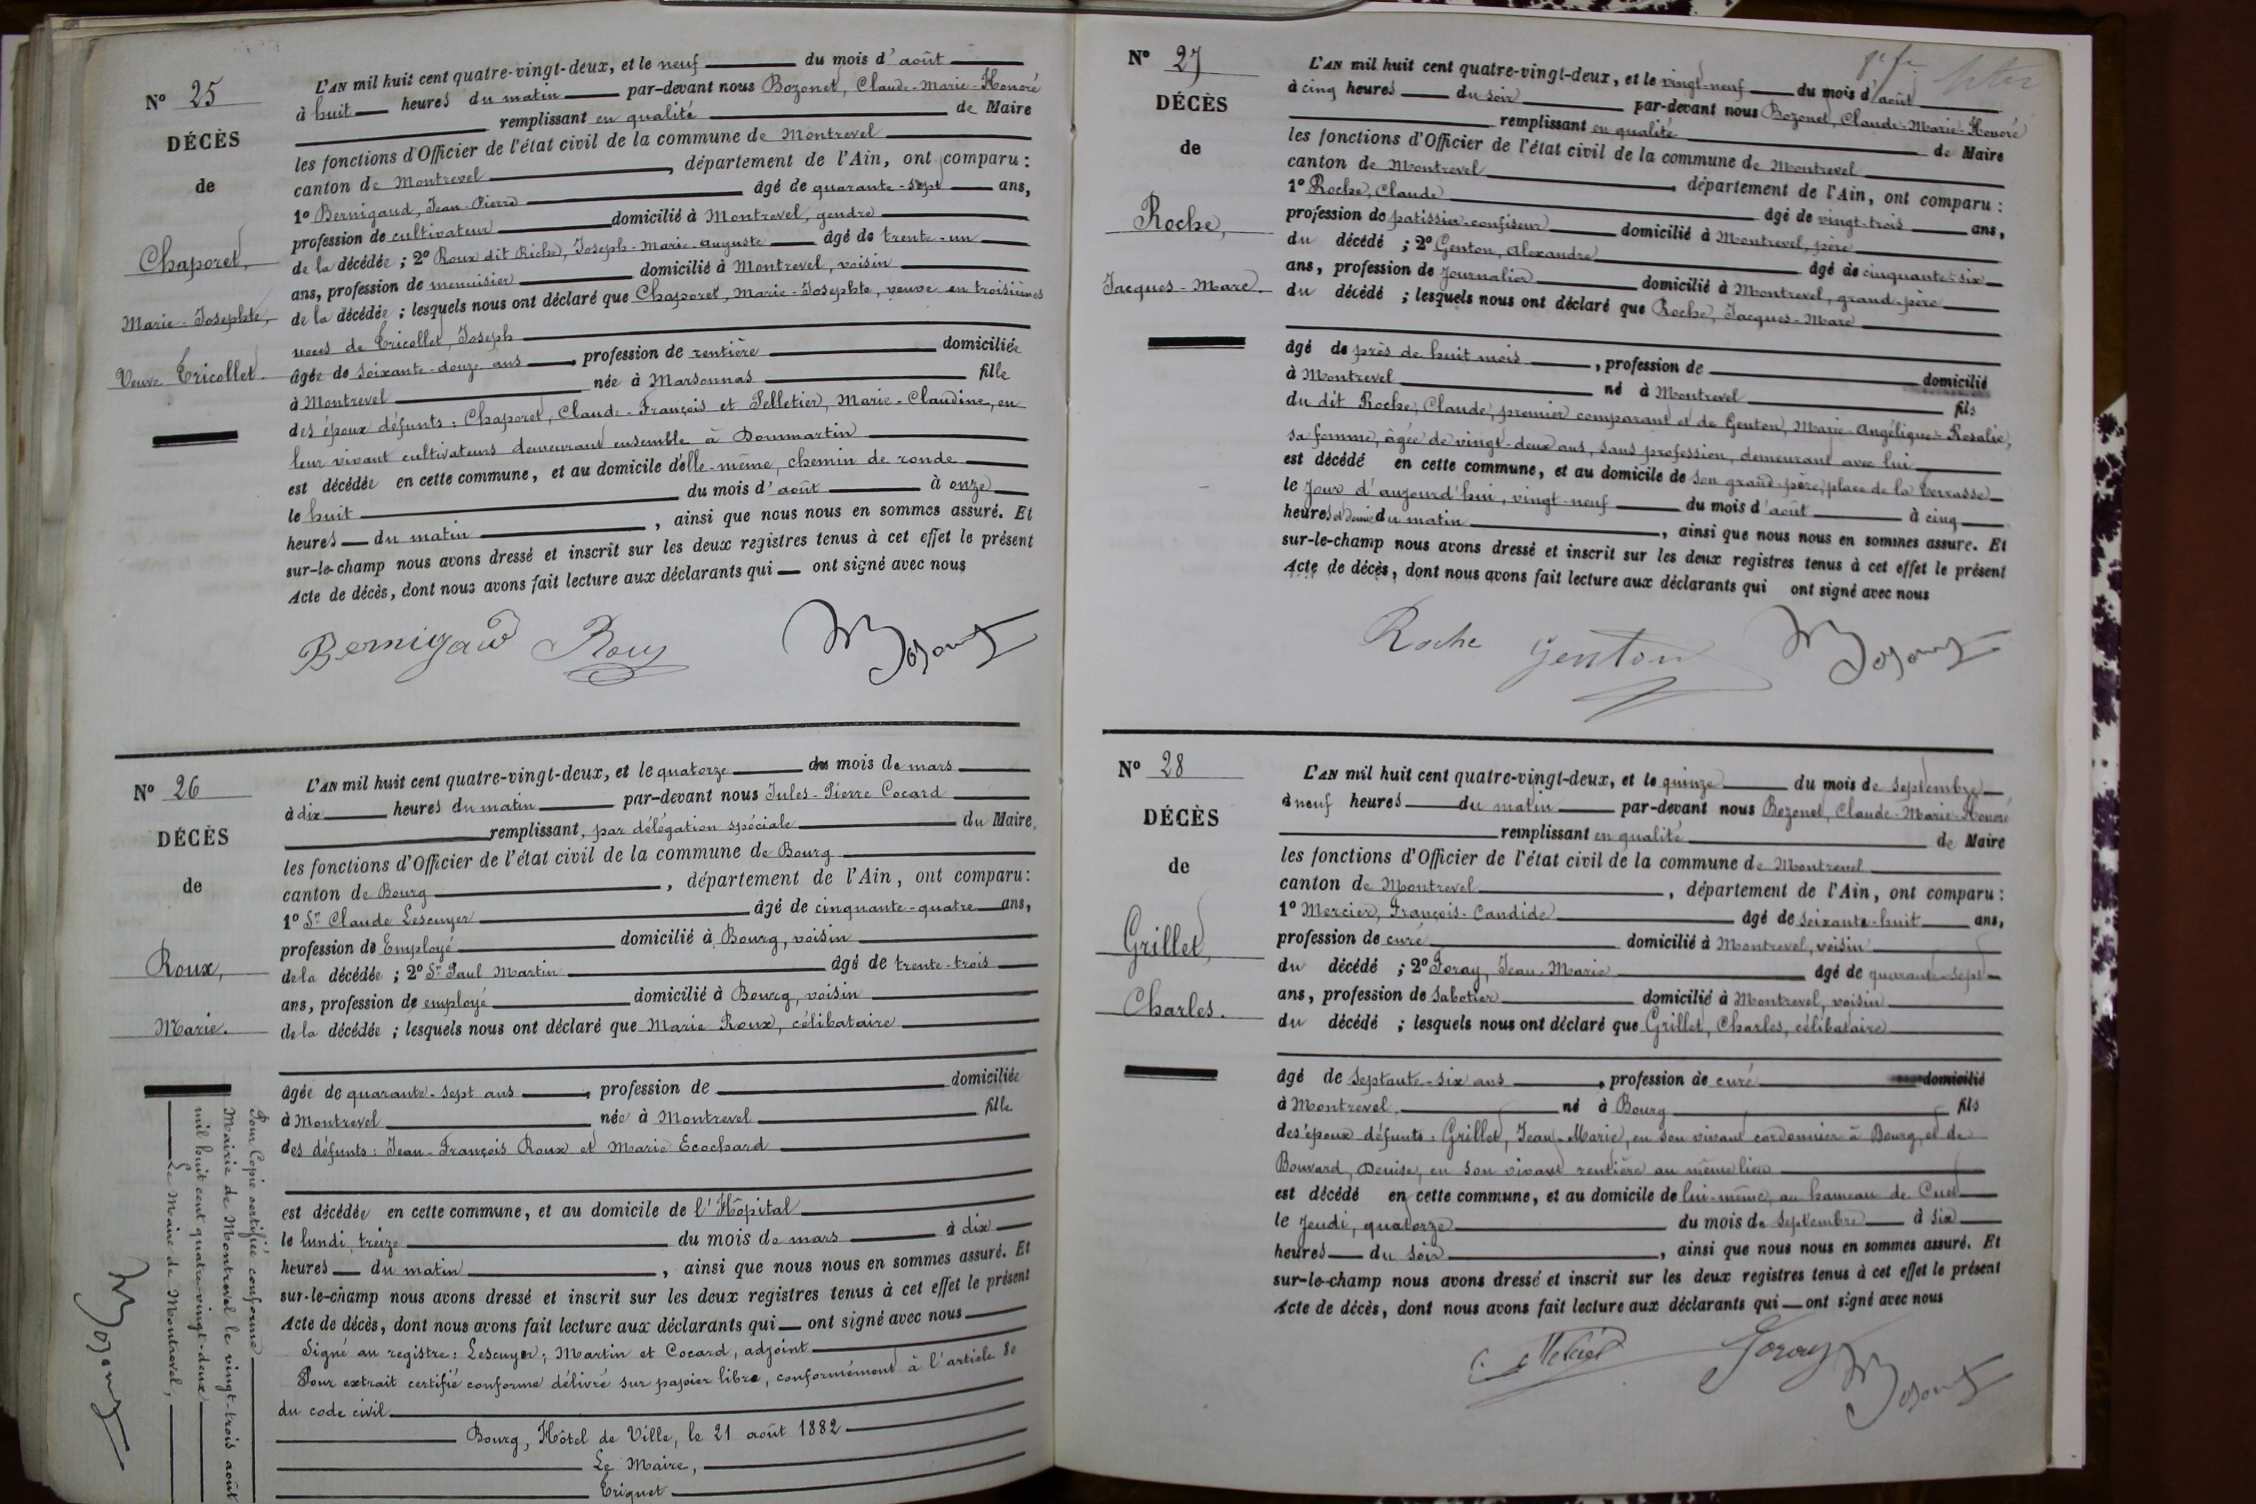 N° 25
DÉCÈS
de
Chaporet,
Marie-Josephte,
Veuve Tricollet.
L'AN mil huit cent quatre-vingt-deux, et le neuf du mois d'août
à huit heures du matin par-devant nous Bozonet, Claude-Marie-Honoré
remplissant en qualité de Maire
les fonctions d'Officier de l'état civil de la commune de Montrevel
canton de Montrevel, département de l'Ain, ont comparu :
1° Bernigaud, Jean-Pierre âgé de quarante-sept ans,
profession de cultivateur domicilié à Montrevel, gendre
de la décédée ; 2° Roux dit Riche, Joseph-Marie-Auguste âgé de trente-un
ans, profession de menuisier domicilié à Montrevel, voisin
de la décédée ; lesquels nous ont déclaré que Chaporet, Marie-Josephte, veuve en troisièmes
noces de Tricollet, Joseph
âgée de soixante-douze ans, profession de rentière domiciliée
à Montrevel née à Marsonnas fille
des époux défunts : Chaporet, Claude-François et Pelletier, Marie-Claudine, en
leur vivant cultivateurs demeurant ensemble à Dommartin
est décédée en cette commune, et au domicile d'elle-même, chemin de ronde
le huit du mois d'août à onze
heures du matin, ainsi que nous nous en sommes assuré. Et
sur-le-champ nous avons dressé et inscrit sur les deux registres tenus à cet effet le présent
Acte de décès, dont nous avons fait lecture aux déclarants qui ont signé avec nous
Bernigaud Roux Bozonet
N° 26
DÉCÈS
de
Roux,
Marie.
L'AN mil huit cent quatre-vingt-deux, et le quatorze du mois de mars
à dix heures du matin par-devant nous Jules-Pierre Cocard
remplissant, par délégation spéciale du Maire,
les fonctions d'Officier de l'état civil de la commune de Bourg
canton de Bourg, département de l'Ain, ont comparu :
1° Sr Claude Lescuyer âgé de cinquante-quatre ans,
profession de Employé domicilié à Bourg, voisin
de la décédée ; 2° Sr Paul Martin âgé de trente-trois
ans, profession de employé domicilié à Bourg, voisin
de la décédée ; lesquels nous ont déclaré que Marie Roux, célibataire
âgée de quarante-sept ans, profession de domiciliée
à Montrevel née à Montrevel fille
des défunts : Jean-François Roux et Marie Ecochard
est décédée en cette commune, et au domicile de l'Hôpital
le lundi, treize du mois de mars à dix
heures du matin, ainsi que nous nous en sommes assuré. Et
sur-le-champ nous avons dressé et inscrit sur les deux registres tenus à cet effet le présent
Acte de décès, dont nous avons fait lecture aux déclarants qui ont signé avec nous
Signé au registre : Lescuyer, Martin et Cocard, adjoint
Pour extrait certifié conforme délivré sur papier libre, conformément à l'article 80
du code civil
Bourg, Hôtel de Ville, le 21 août 1882
Le Maire,
Triquet
Pour Copie certifiée conforme
Mairie de Montrevel le vingt-trois août
mil huit cent quatre-vingt-deux
Le Maire de Montrevel,
Bozonet
N° 27
DÉCÈS
de
Roche,
Jacques-Marc.
L'AN mil huit cent quatre-vingt-deux, et le vingt-neuf du mois d'août
à cinq heures du soir par-devant nous Bozonet, Claude-Marie-Honoré
remplissant en qualité de Maire
les fonctions d'Officier de l'état civil de la commune de Montrevel
canton de Montrevel, département de l'Ain, ont comparu :
1° Roche, Claude âgé de vingt-trois ans,
profession de patissier-confiseur domicilié à Montrevel, père
du décédé ; 2° Genton, Alexandre âgé de cinquante-six
ans, profession de journalier domicilié à Montrevel, grand-père
du décédé ; lesquels nous ont déclaré que Roche, Jacques-Marc
âgé de près de huit mois, profession de domicilié
à Montrevel né à Montrevel fils
du dit Roche, Claude, premier comparant et de Genton, Marie-Angélique-Rosalie,
sa femme, âgée de vingt-deux ans, sans profession, demeurant avec lui
est décédé en cette commune, et au domicile de son grand-père, place de la terrasse
le jour d'aujourd'hui, vingt-neuf du mois d'août à cinq
heures et demie du matin, ainsi que nous nous en sommes assuré. Et
sur-le-champ nous avons dressé et inscrit sur les deux registres tenus à cet effet le présent
Acte de décès, dont nous avons fait lecture aux déclarants qui ont signé avec nous
Roche Genton Bozonet
N° 28
DÉCÈS
de
Grillet,
Charles.
L'AN mil huit cent quatre-vingt-deux, et le quinze du mois de septembre
à neuf heures du matin par-devant nous Bozonet, Claude-Marie-Honoré
remplissant en qualité de Maire
les fonctions d'Officier de l'état civil de la commune de Montrevel
canton de Montrevel, département de l'Ain, ont comparu :
1° Mercier, François-Candide âgé de soixante-huit ans,
profession de curé domicilié à Montrevel, voisin
du décédé ; 2° Foray, Jean-Marie âgé de quarante-sept
ans, profession de sabotier domicilié à Montrevel, voisin
du décédé ; lesquels nous ont déclaré que Grillet, Charles, célibataire
âgé de septante-six ans, profession de curé domicilié
à Montrevel, né à Bourg fils
des époux défunts : Grillet, Jean-Marie, en son vivant cordonnier à Bourg, et de
Bouvard, Denise, en son vivant rentière au même lieu
est décédé en cette commune, et au domicile de lui-même, au hameau de Cuet
le jeudi, quatorze du mois de septembre à six
heures du soir, ainsi que nous nous en sommes assuré. Et
sur-le-champ nous avons dressé et inscrit sur les deux registres tenus à cet effet le présent
Acte de décès, dont nous avons fait lecture aux déclarants qui ont signé avec nous
Mercier Foray Bozonet